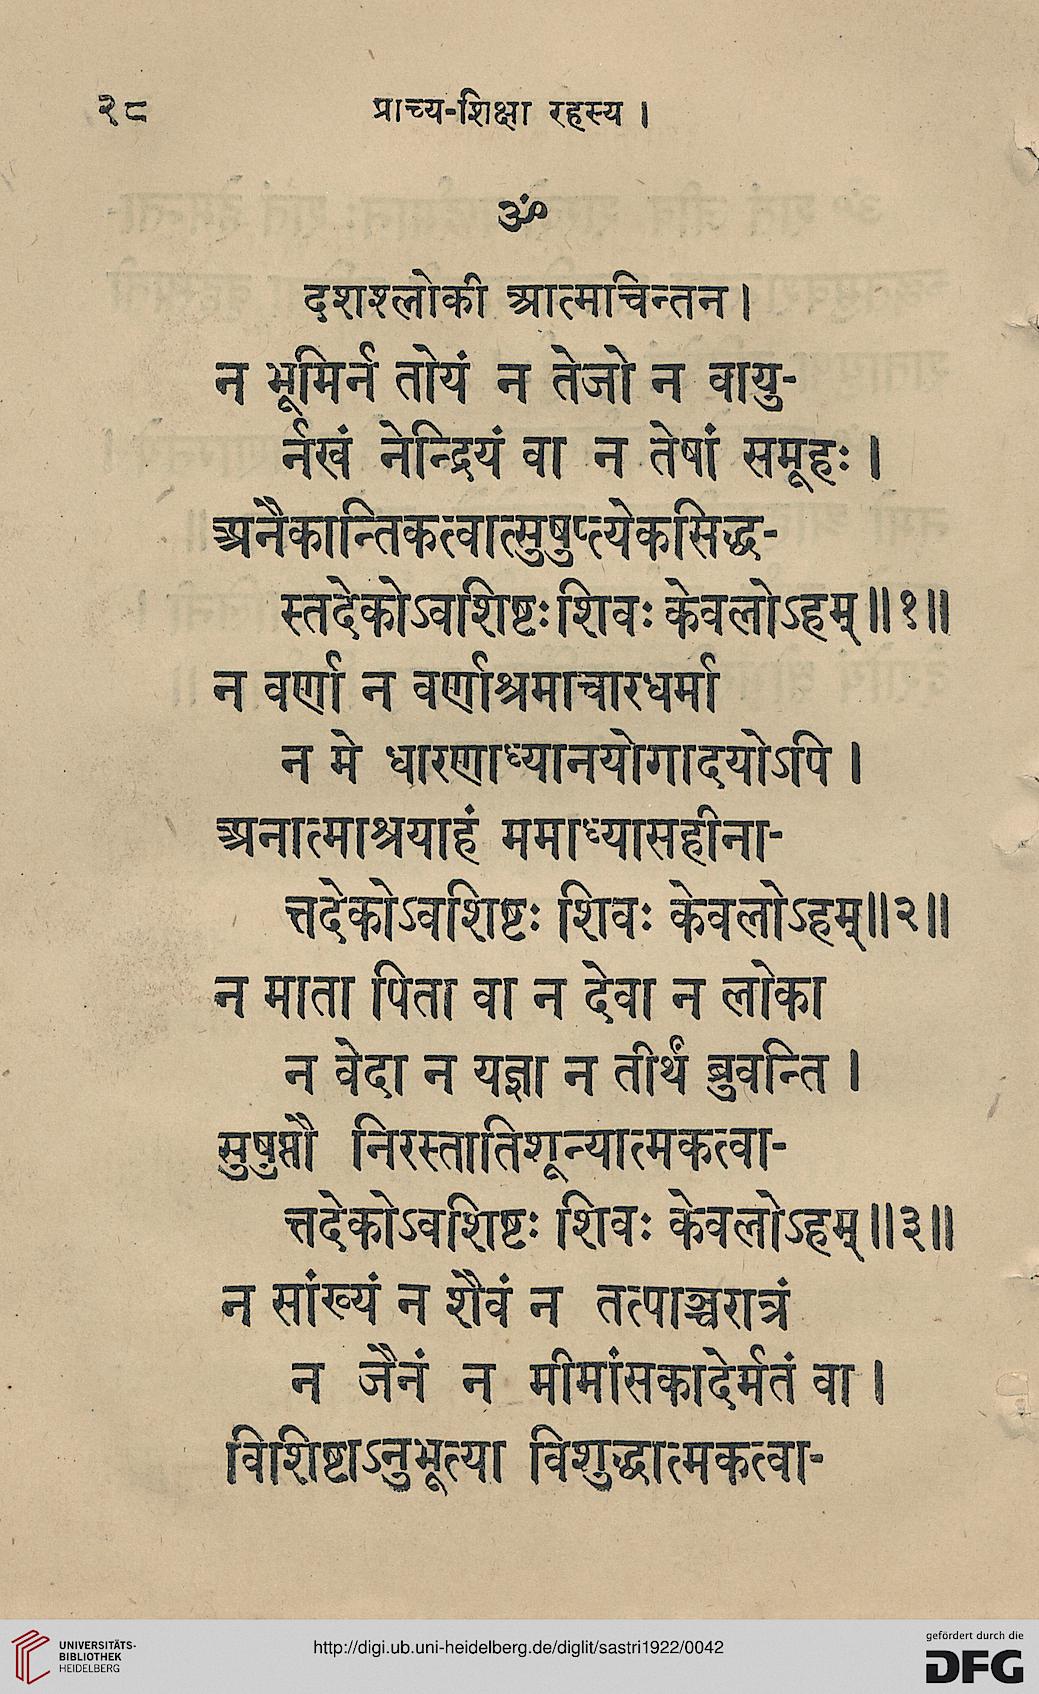 २८ प्राच्य-शिक्षा रहस्य ।
ॐ
दशश्लोकी आत्मचिन्तन ।
न भूमिर्न तोयं न तेजो न वायु-
र्नखं नेन्द्रियं वा न तेषां समूहः ।
अनैकान्तिकत्वात्सुषुप्त्येकसिद्ध-
स्तदेकोऽवशिष्टः शिवः केवलोऽहम् ॥ १ ॥
न वर्णा न वर्णाश्रमाचारधर्मा
न मे धारणाध्यानयोगादयोऽपि ।
अनात्माश्रयाहं ममाध्यासहीना-
त्तदेकोऽवशिष्टः शिवः केवलोऽहम् ॥ २ ॥
न माता पिता वा न देवा न लोका
न वेदा न यज्ञा न तीर्थं ब्रुवन्ति ।
सुषुप्तौ निरस्तातिशून्यात्मकत्वा-
त्तदेकोऽवशिष्टः शिवः केवलोऽहम् ॥ ३ ॥
न सांख्यं न शैवं न तत्पाञ्चरात्रं
न जैनं न मीमांसकादेर्मतं वा ।
विशिष्टाऽनुभूत्या विशुद्धात्मकत्वा-
UNIVERSITÄTS-
BIBLIOTHEK
HEIDELBERG
http://digi.ub.uni-heidelberg.de/diglit/sastri1922/0042
gefördert durch die
DFG